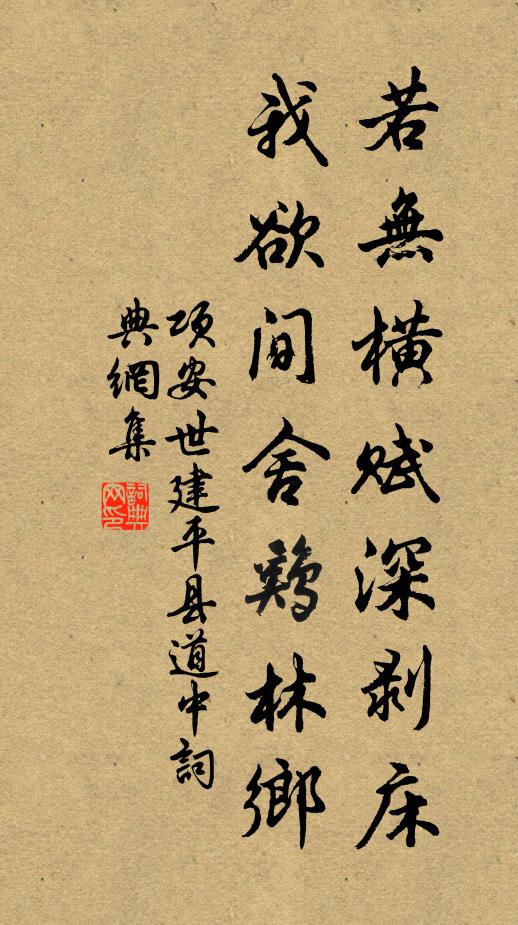 若無橫賦深剥床
我欲間舍鷄林鄉
項安世建平县道中詞
典網集
詞典
网印